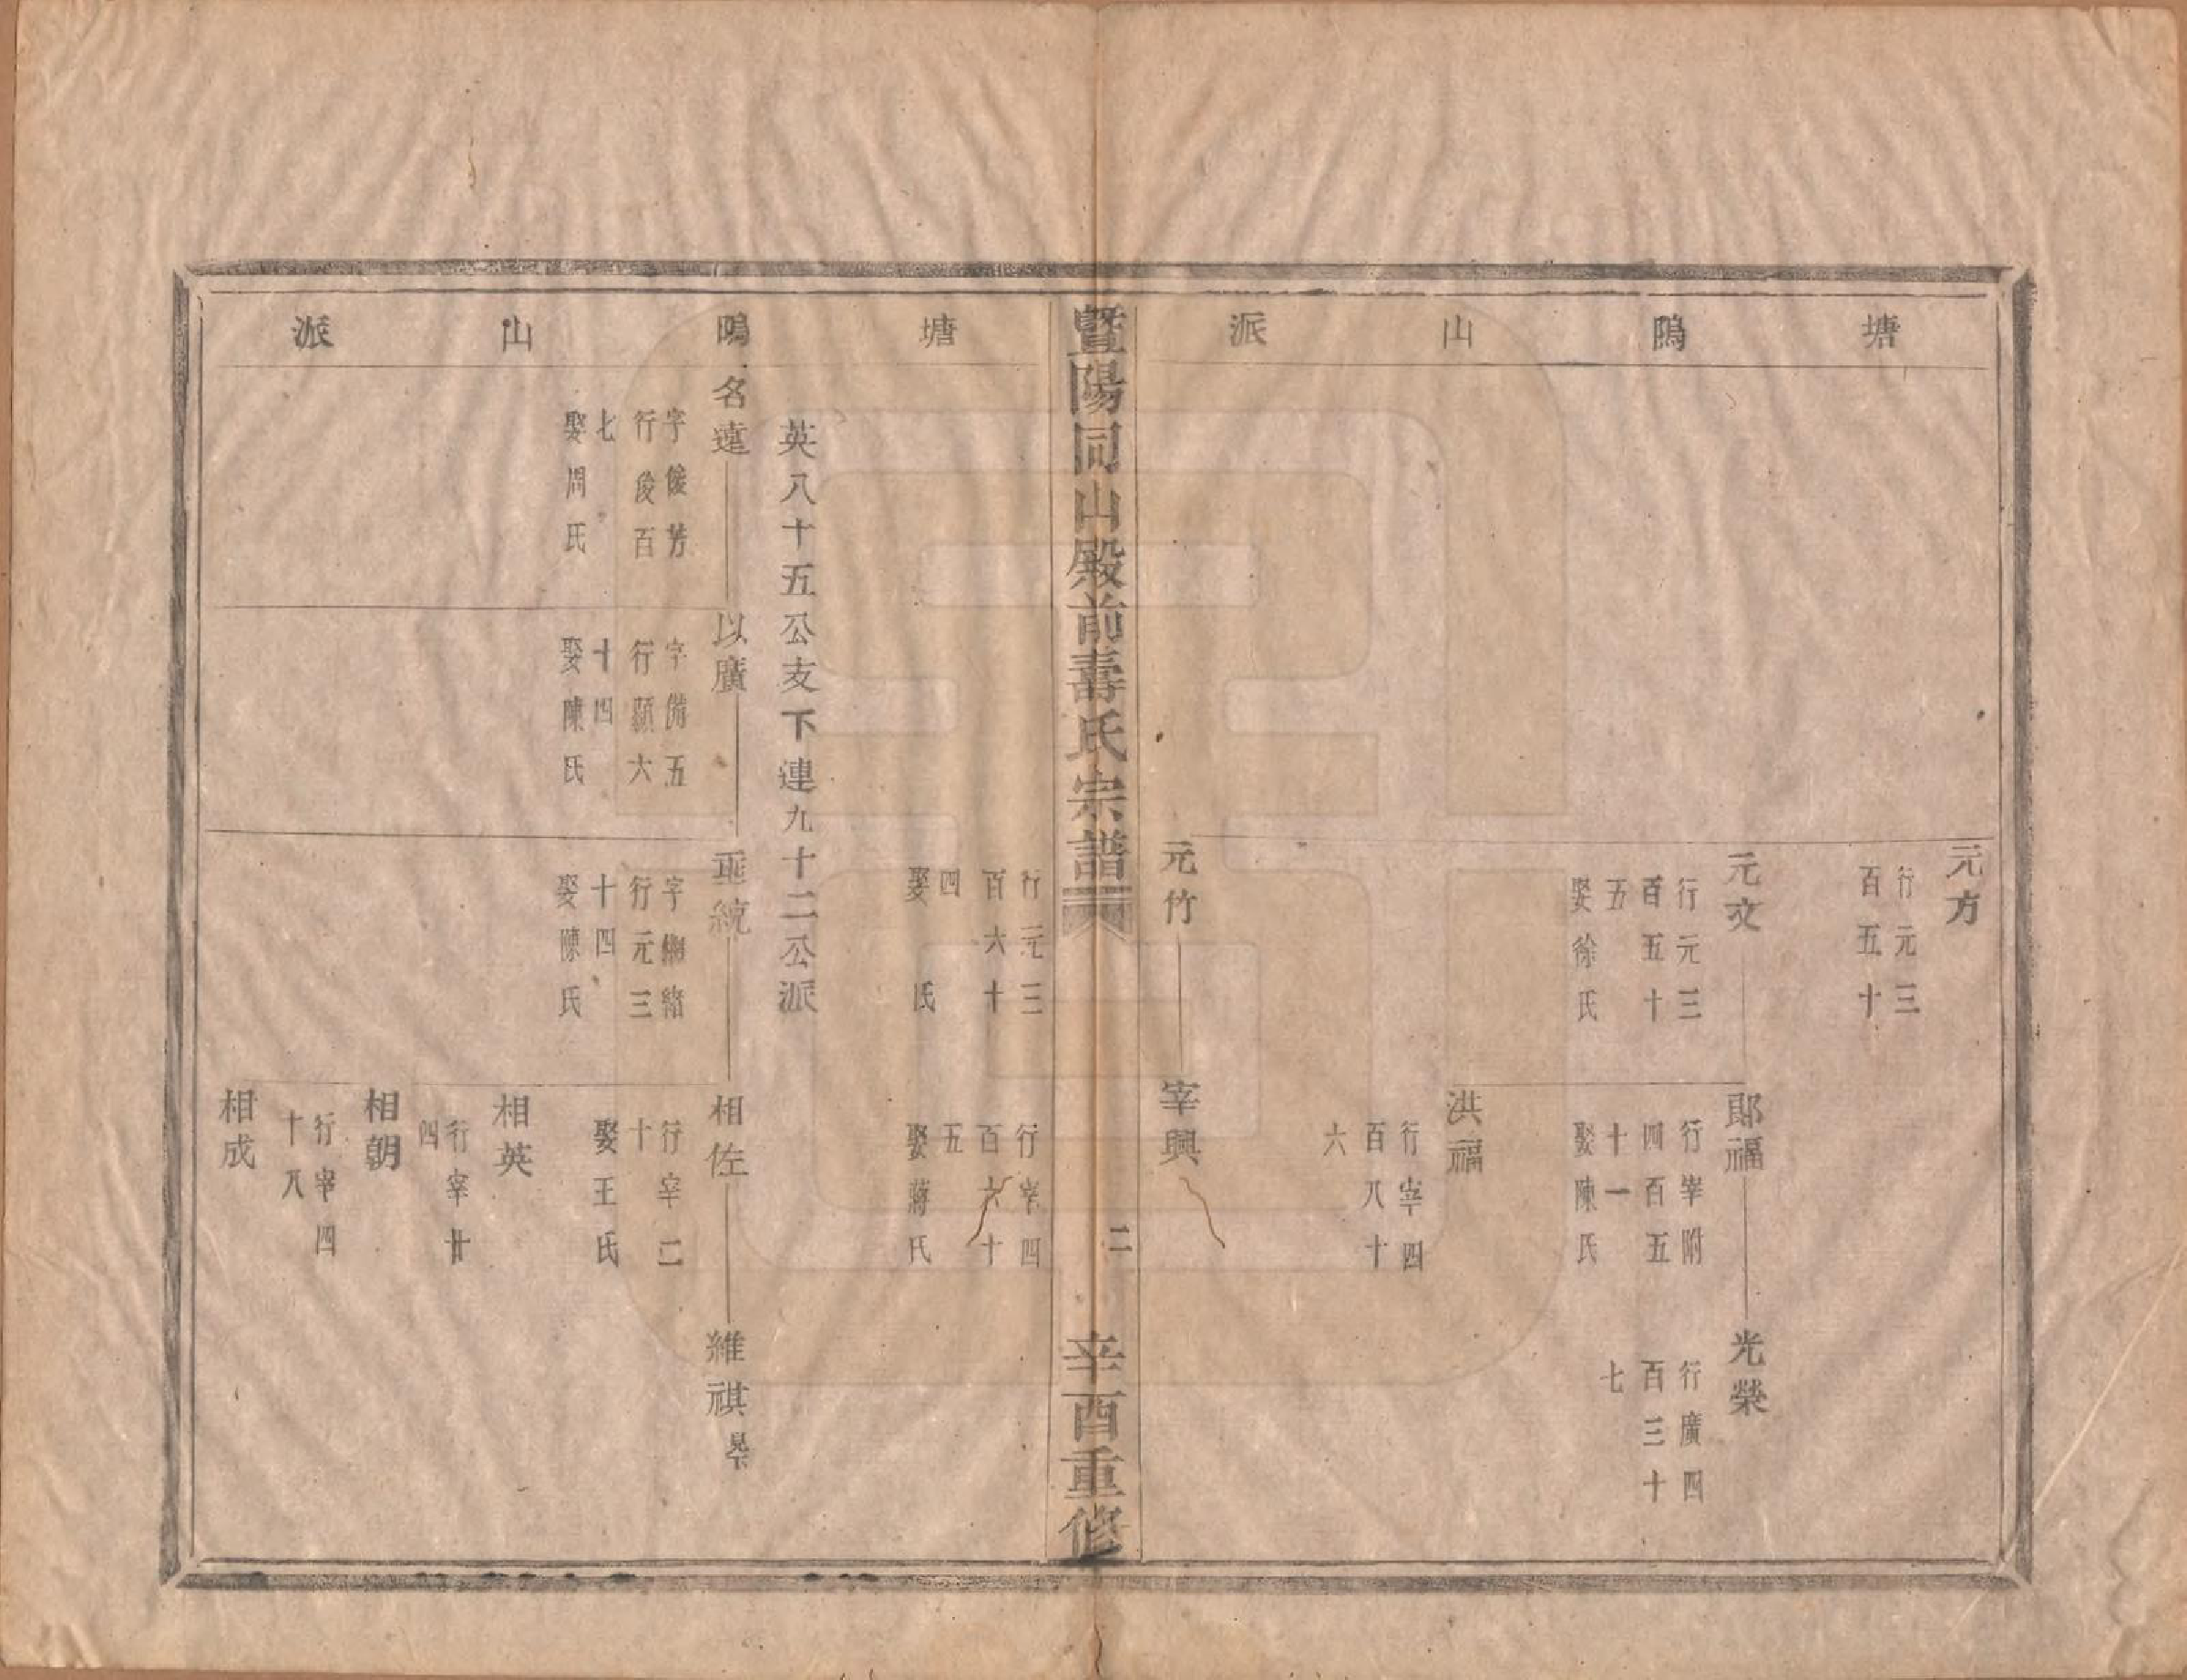 塘鴫山派
元方
行元三
百五十
元文
行元三
百五十
五
娶徐氏
郞福
行宰附
四百五
十一
娶陳氏
光榮
行廣四
百三十
七
洪福
行宰四
百八十
六
元竹
行元三
百六十
四
娶 氏
宰興
行宰四
百六十
五
娶蔣氏
暨陽同山殿前壽氏宗譜
二
辛酉重修
塘鴫山派
英八十五公支下連九十二公派
名遠
字俊芳
行俊百
七
娶周氏
以廣
字備五
行顯六
十四
娶陳氏
垂統
字緒
行元三
十四
娶陳氏
相佐
行宰二
十
娶王氏
維祺
相英
行宰廿
四
相朝
行宰四
十八
相成